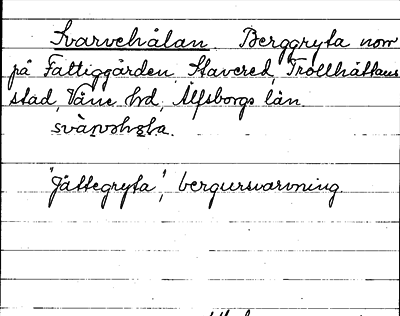 Svarvehålan. Berggryta norr
på Fattiggården, Stavered, Trollhättans
stad, Väne hd, Älfsborgs län.
"Jättegryta", bergursvarvning.